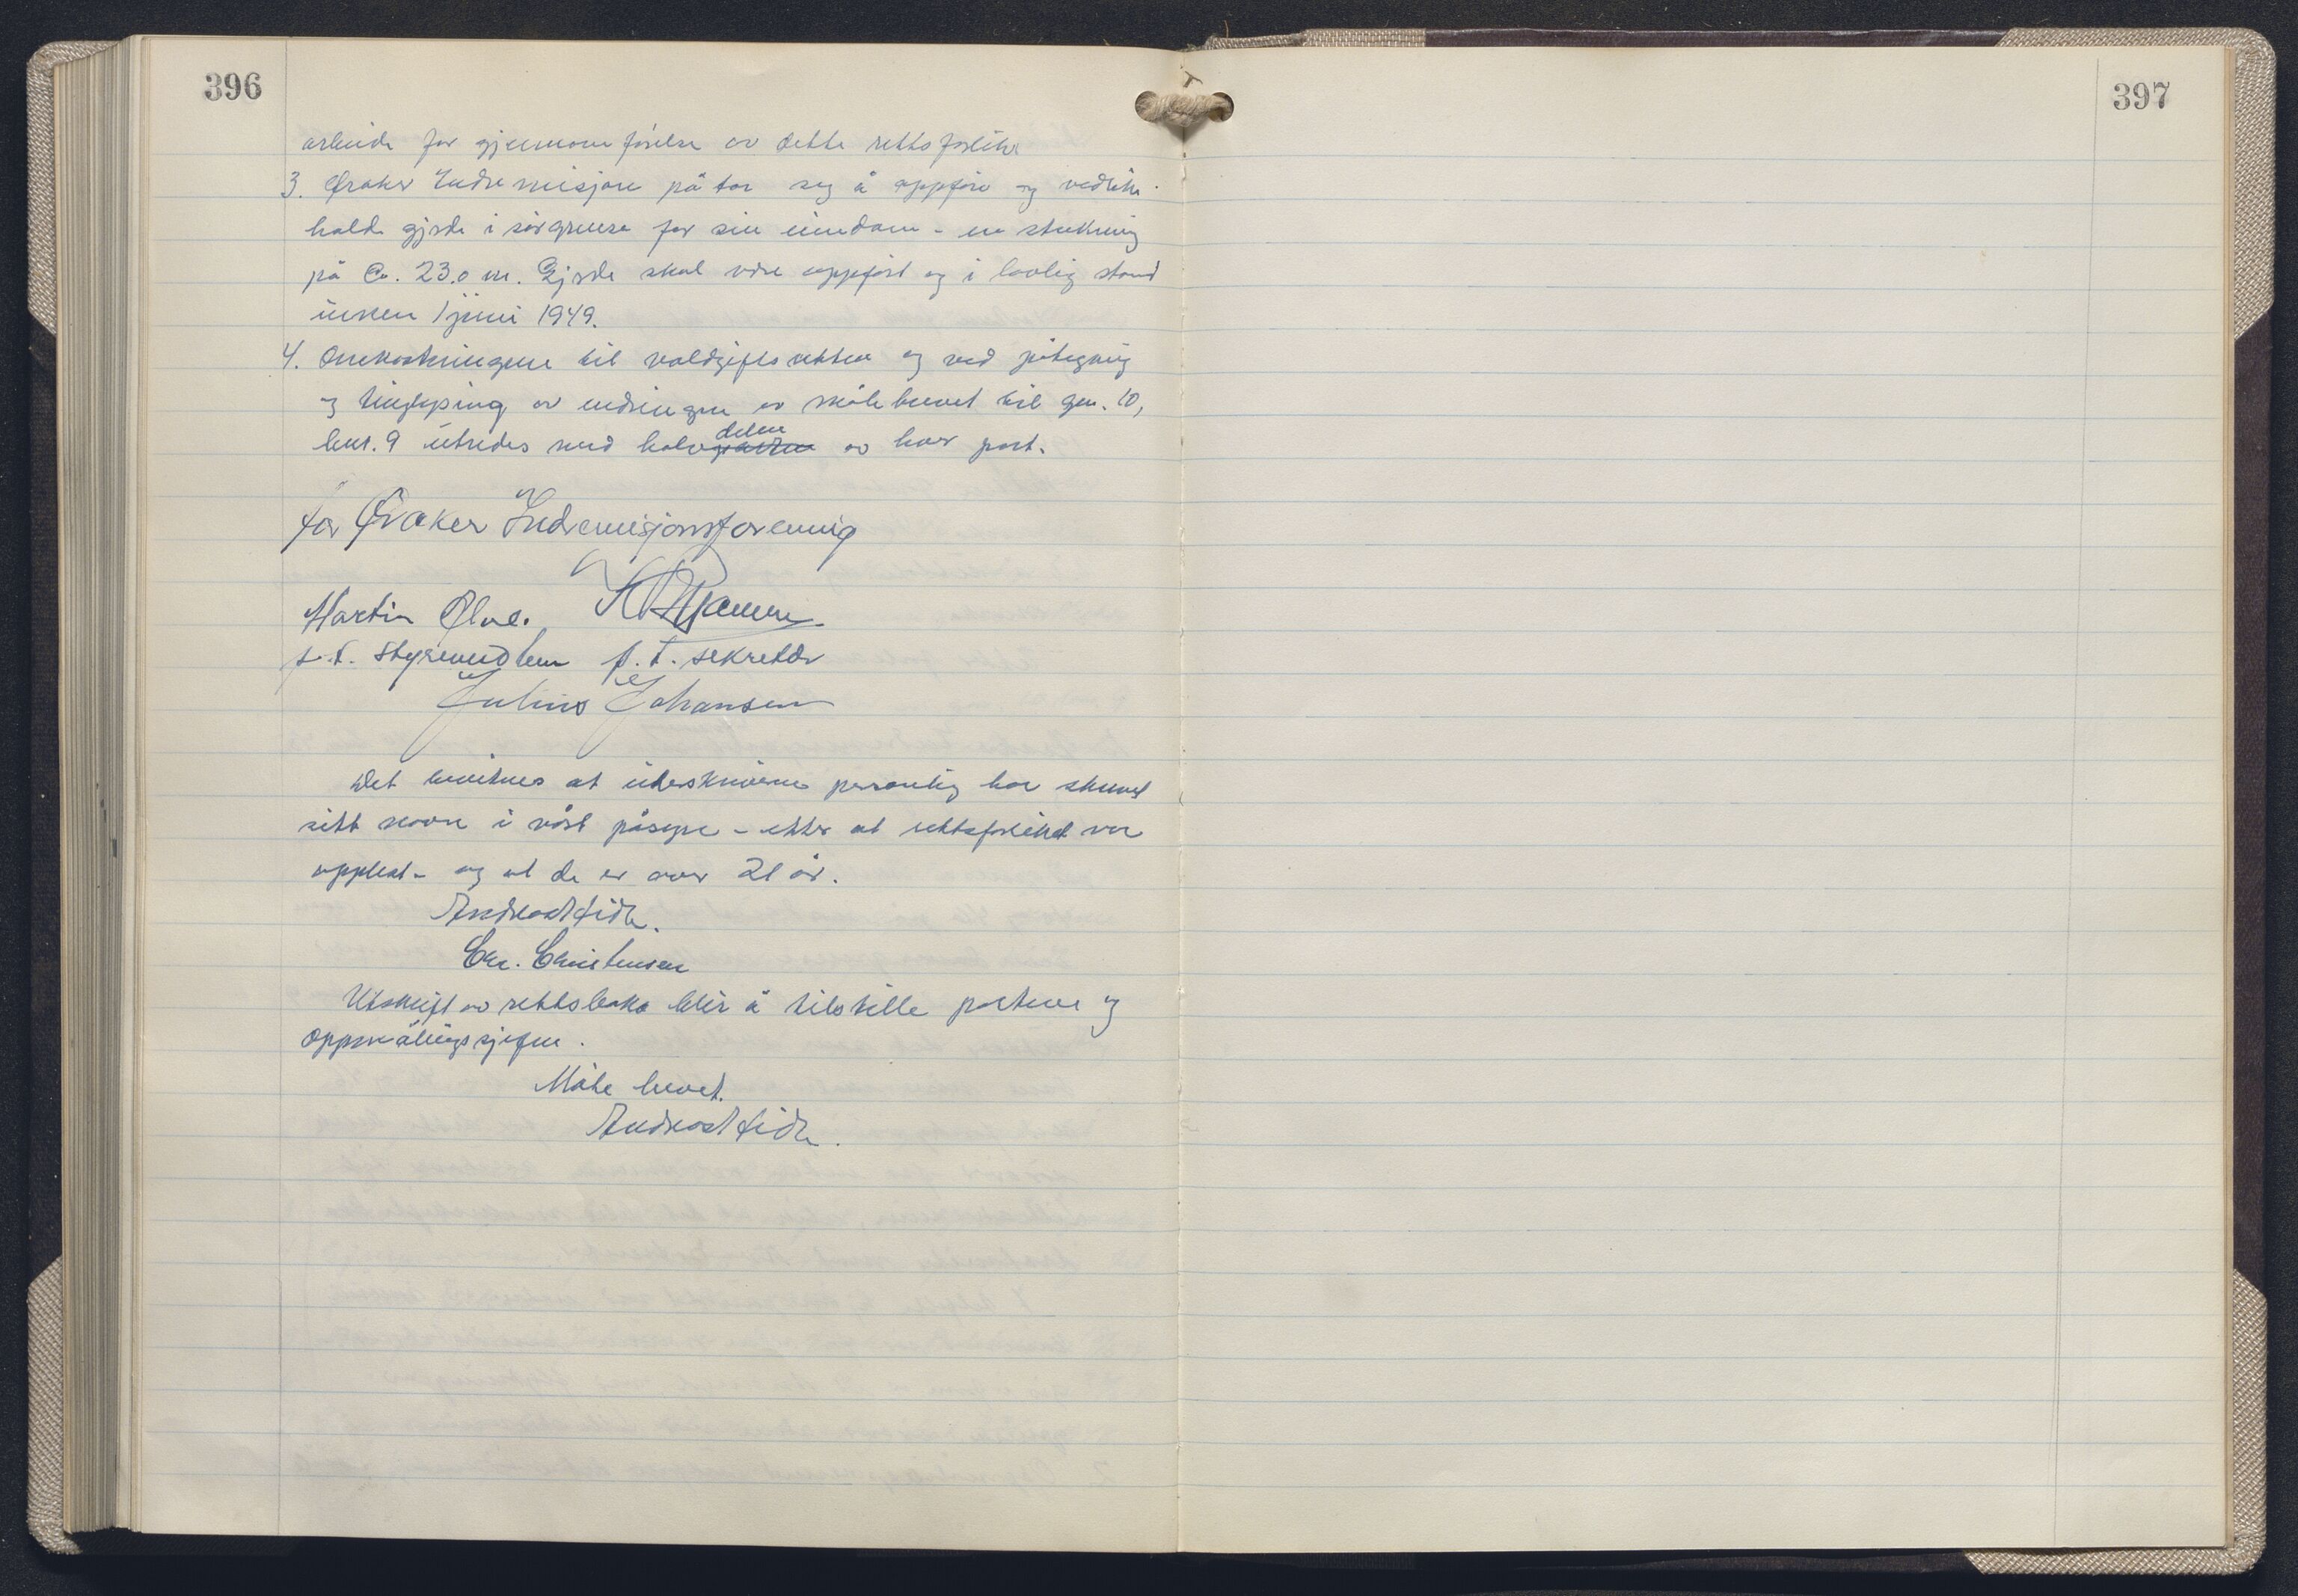 396
397
arbeide for gjennomförelse av dette rettsforliket
3. Øraker Indremisjon påtar seg å oppföre og vedlike-
holde gjerde i sörgrense for sin eiendom - en strekning
på ca. 23.0 m. Gjerde skal være oppfört og i lovlig stand
innen 1 juni 1949.
4. Omkostningene til voldgiftsretten og ved påtegning
og tinglysing av endringen av målebrevet til gnr. 10,
bnr. 9 utredes med halvdelen av hver part.
for Øraker Indremisjonsforening
Martin
f.t. styremedlem f.t. sekretær
Julius Johansen
Det bevitnes at underskriverne personlig har skrevet
sitt navn i vårt påsyn - etter at rettsforliket var
opplest - og at de er over 21 år.
Chr. Christensen
Utskrift av rettsboka blir å tilstille partene og
oppmålingssjefen.
Møte hevet.